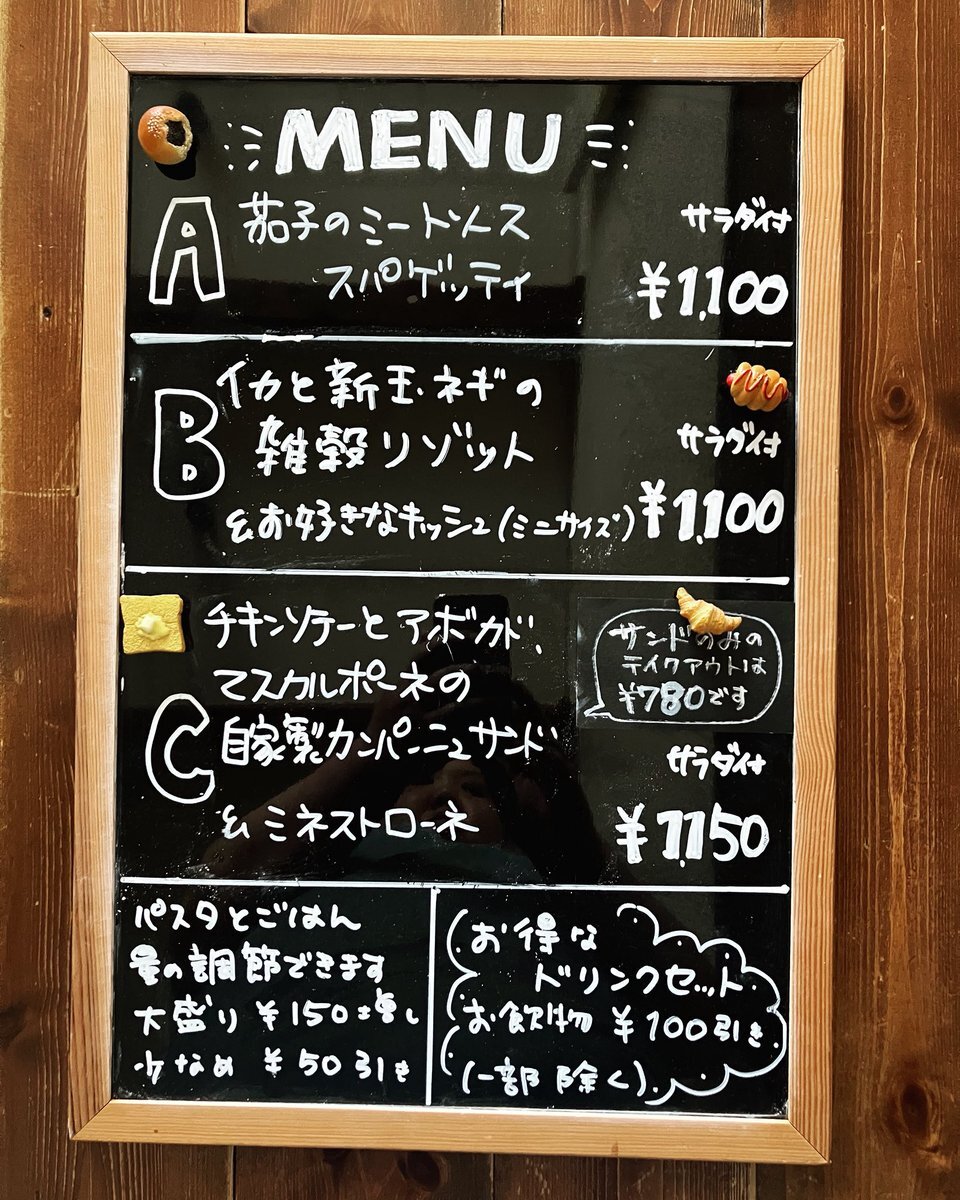 MENU
A
茄子のミートソース
スパゲッティ
サラダ付
¥1,100
B
イカと新玉ネギの
雑穀リゾット
&お好きなキッシュ(ミニサイズ)
サラダ付
¥1,100
C
チキンソテーとアボカド
マスカルポーネの
自家製カンパーニュサンド
&ミネストローネ
サンドのみの
テイクアウトは
¥780です
サラダ付
¥1,150
パスタとごはん
量の調節できます
大盛り ¥150増し
少なめ ¥50引き
お得な
ドリンクセット
お飲物 ¥100引き
(一部除く)